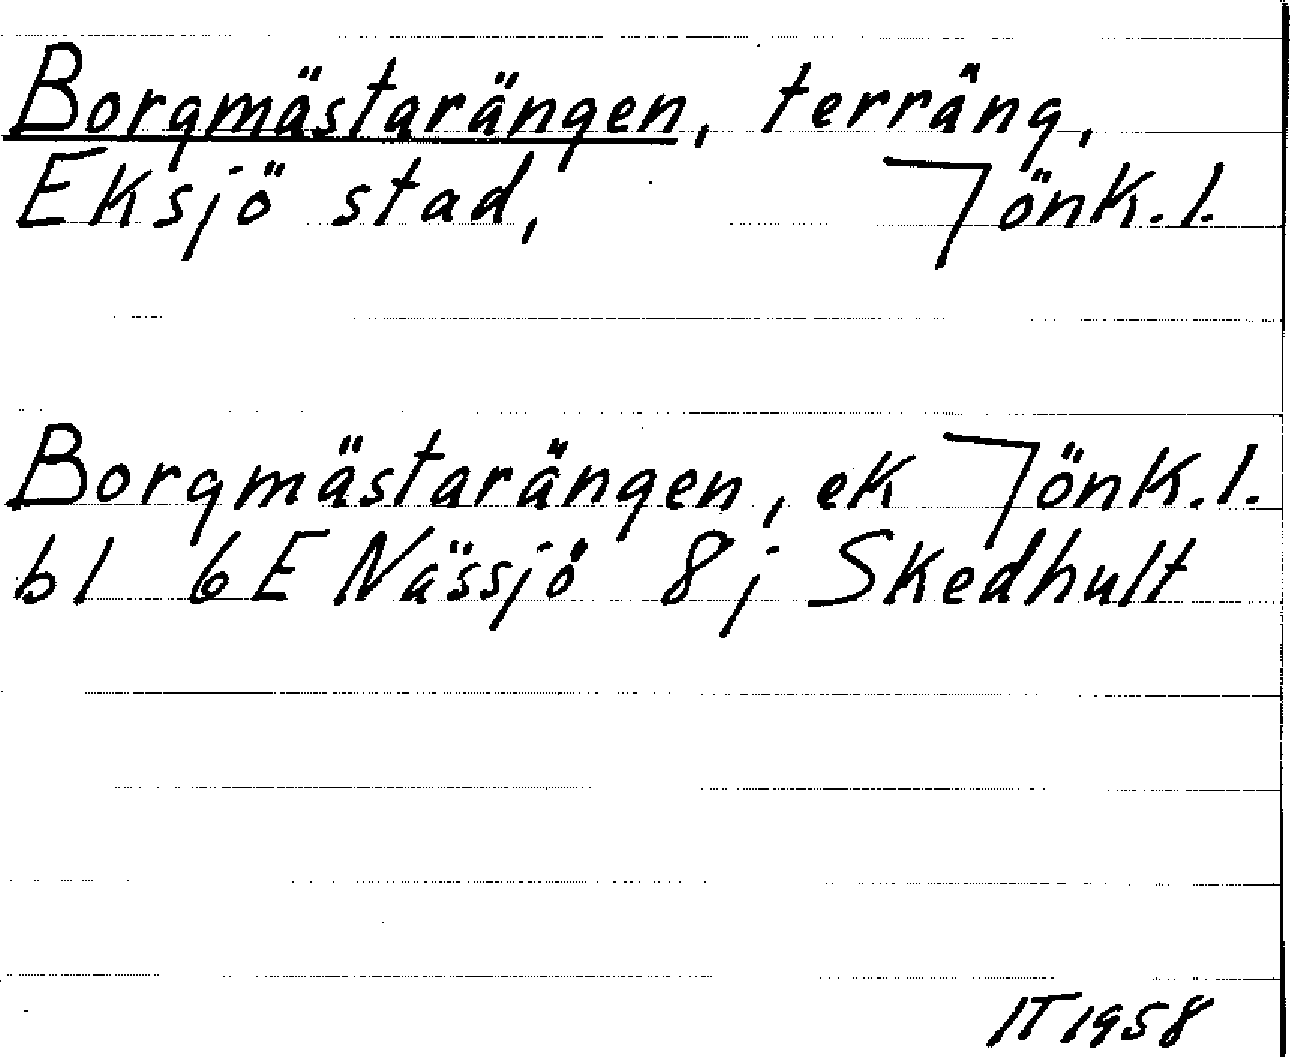 Borgmästarängen, terräng,
Eksjö stad, Jönk.l.
Borgmästarängen, ek Jönk.l.
bl 6E Nässjö 8j Skedhult
IT 1958